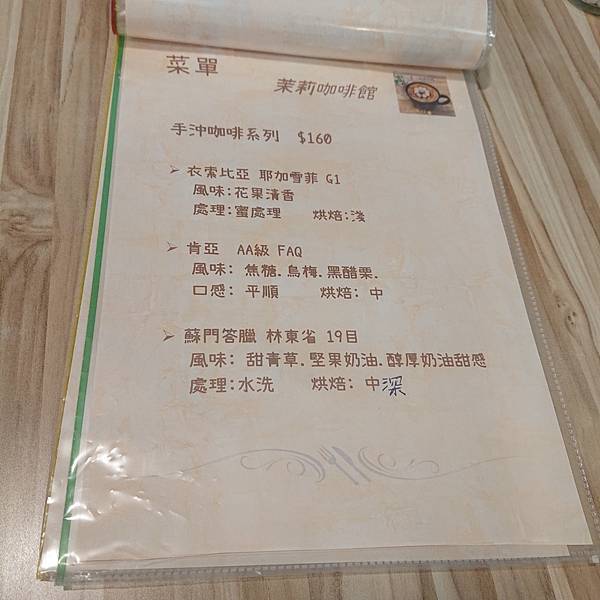 菜單
茉莉咖啡館
手沖咖啡系列 $160
➢ 衣索比亞 耶加雪菲 G1
風味:花果清香
處理:蜜處理 烘焙:淺
➢ 肯亞 AA級 FAQ
風味: 焦糖.烏梅.黑醋栗.
口感: 平順 烘焙: 中
➢ 蘇門答臘 林東省 19目
風味: 甜青草.堅果奶油.醇厚奶油甜感
處理:水洗 烘焙: 中深